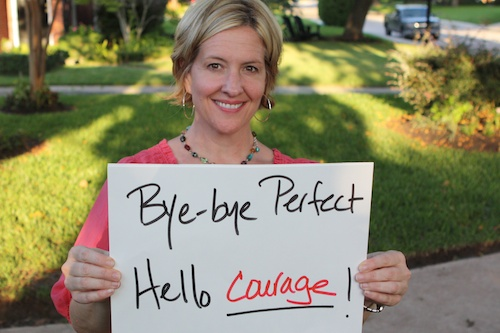 Bye-bye Perfect
Hello Courage!